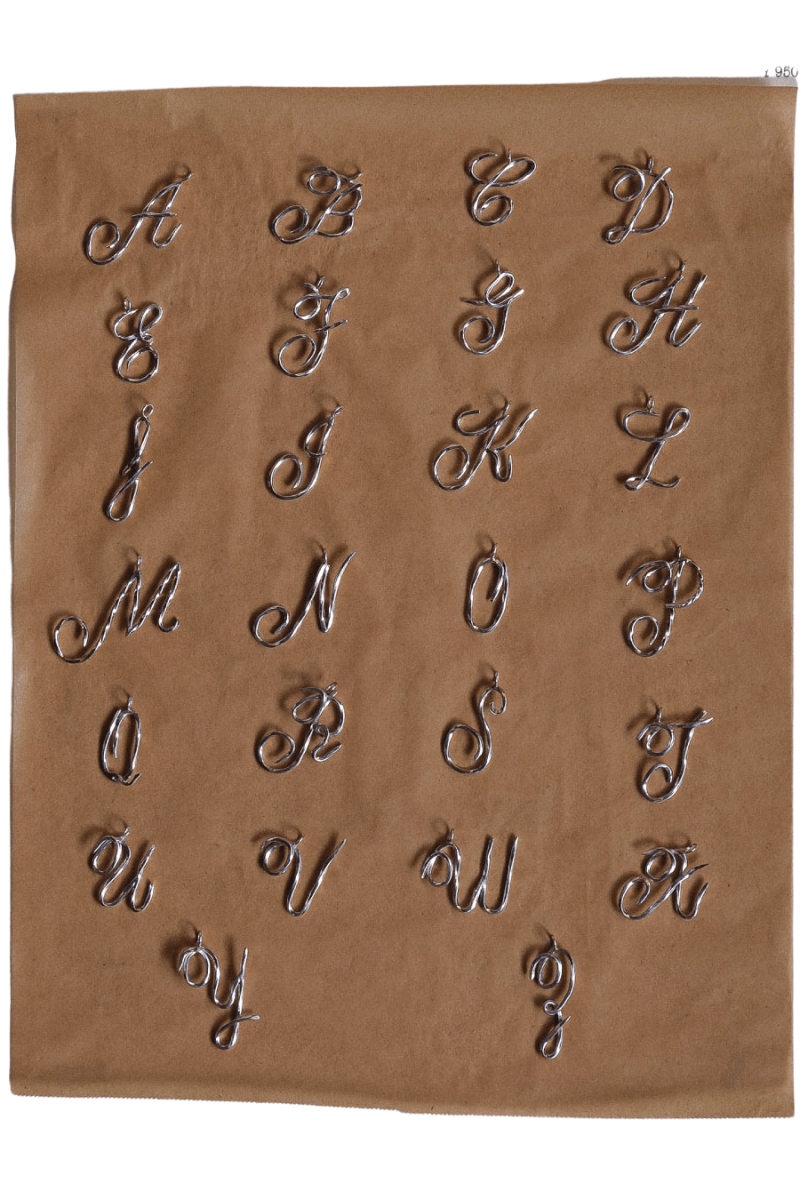 950
A B C D
E F G H
J I K L
M N O P
Q R S T
U V W X
Y Z